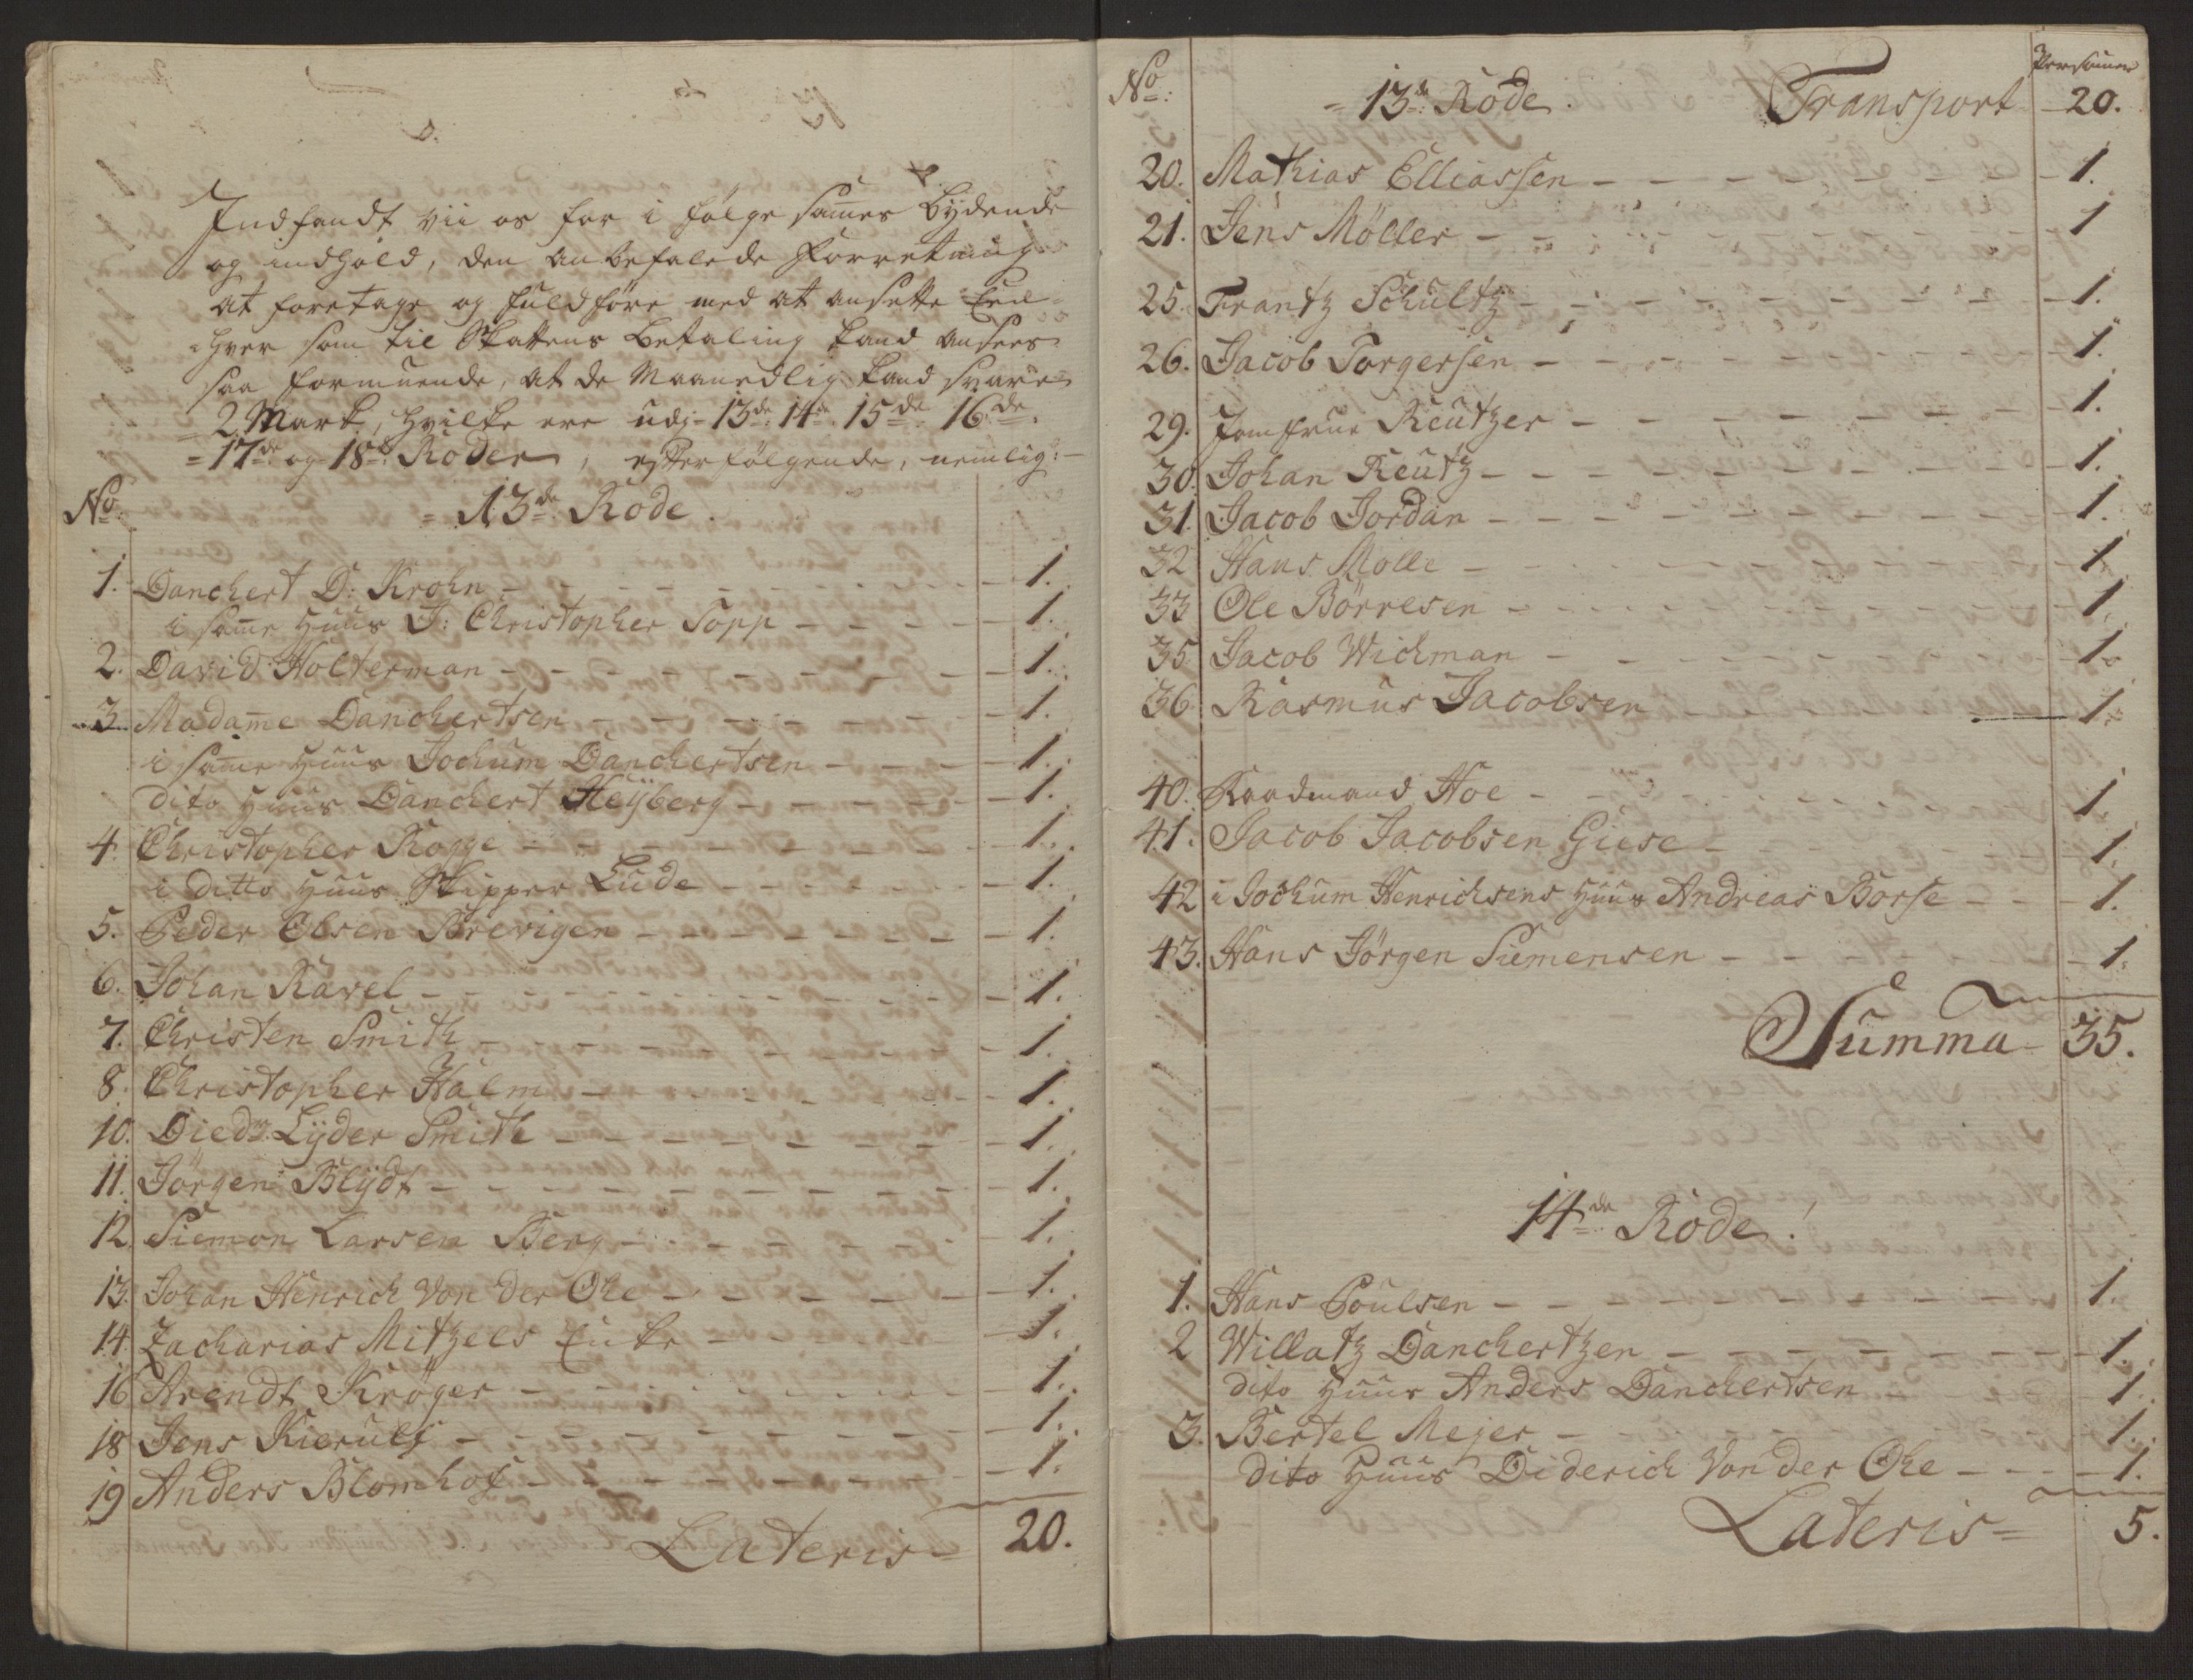 Indfandt vii os for i følge sames bydende
og indhold, den anbefalede Forretning
at foretage og fuldføre med at ansette Een-
hver som til Skattens betaling kand ansees
saa formuende, at de Maanedlig kand svare
2 Mark, hvilke ere udj = 13de 14de 15de 16de
= 17de og 18de Roder, efterfølgende, nemlig:
No = 13de Rode.
1. Danchert D: Krohn 1.
i same Huus J: Christopher Topp 1.
2. David Holterman 1.
3. Madame Danchertsen 1.
i same Huus Jochum Danchertsen 1.
dito Huus Danchert Heÿberg 1.
4. Christopher Rogge 1.
i Ditto Huus Skipper Lude 1.
5. Peder Olsen Brevigen 1.
6. Johan Ravel 1.
7. Christen Smith 1.
8. Christopher Halm 1.
10. Diedr: Lÿder Smith 1.
11. Jörgen Blÿdt 1.
12. Siemon Larsen Berg 1.
13. Johan Henrich Von der Ohe 1.
14. Zacharias Mitzels Enke 1.
16 Arendt Kröger 1.
18 Jens Kierulf 1.
19 Anders Blomhof 1.
Lateris = 20.
No: Personer
= 13de Rode. Transport 20.
20. Mathias Elliassen 1.
21. Jens Möller 1
25. Frantz Schultz 1.
26. Jacob Torgersen 1.
29. Jomfrue Reutzer 1.
30. Johan Reutz 1.
31. Jacob Jordan 1.
32 Hans Molle 1.
33 Ole Börresen 1.
35 Jacob Wichman 1.
36 Rasmus Jacobsen 1.
40. Raadmand Hoe 1.
41. Jacob Jacobsen Giese 1.
42 i Jochum Henrichsens Huus Andreas Borse 1.
43. Hans Jörgen Siemensen 1.
Summa 35.
14de Rode.
1. Hans Poulsen 1.
2 Willatz Danchertzen 1.
dito Huus Anders Danchertsen 1.
3. Bertel Mejer 1.
dito Huus Diderich Von der Ohe 1.
Lateris = 5.